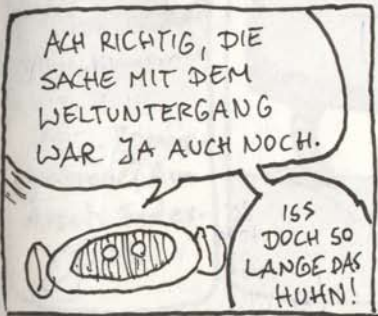 ACH RICHTIG, DIE
SACHE MIT DEM
WELTUNTERGANG
WAR JA AUCH NOCH.
ISS
DOCH SO
LANGE DAS
HUHN!